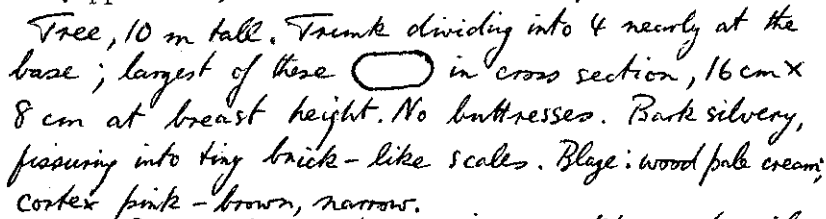 Tree, 10 m tall. Trunk dividing into 4 nearly at the
base; largest of these in cross section, 16 cm x
8 cm at breast height. No buttresses. Bark silvery,
fissuring into tiny brick-like scales. Blaze: wood pale cream;
cortex pink-brown, narrow.